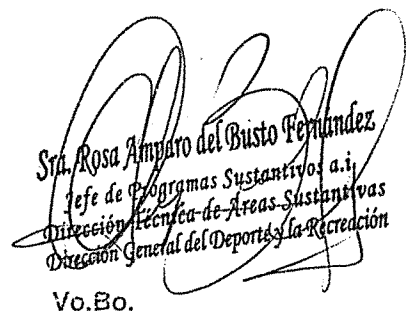 Sra. Rosa Amparo del Busto Fernández
Jefe de Programas Sustantivos a.i.
Dirección Técnica de Areas Sustantivas
Dirección General del Deporte y la Recreación
Vo.Bo.